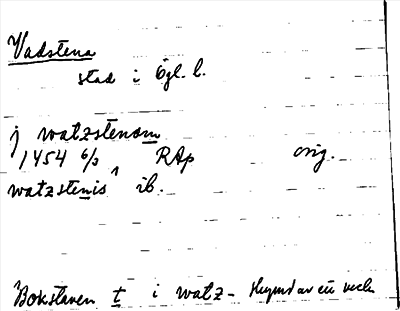 Vadstena
stad i Ögl. l.
j watzstenom
1454 6/3 RAp orig.
watzstenis ib.
Bokstaven t i watz- skymd av ett veck